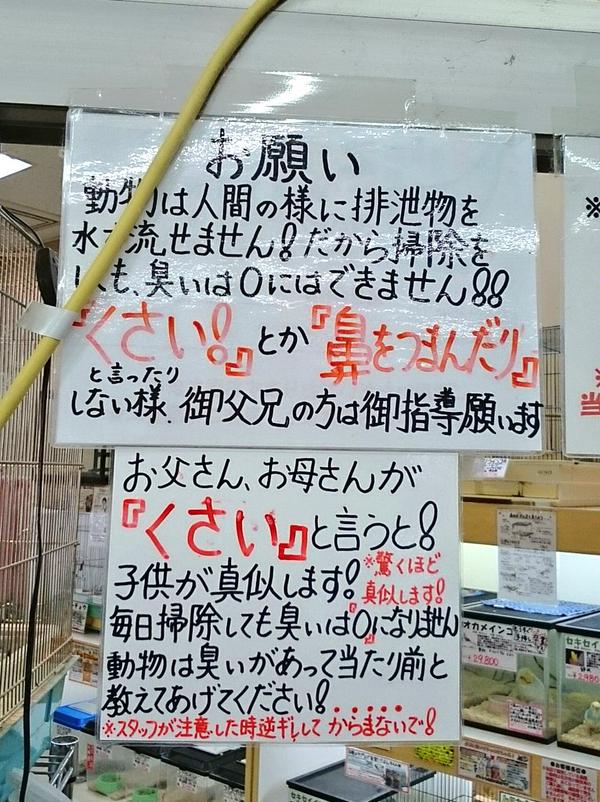 お願い
動物は人間の様に排泄物を
水で流せません!だから掃除を
しても、臭いは0にはできません!!
『くさい!』とか『鼻をつまんだり』
と言ったり
しない様、御父兄の方は御指導願います
お父さん、お母さんが
『くさい』と言うと!
子供が真似します!
※驚くほど
真似します!
毎日掃除しても臭いは『0』になりません
動物は臭いがあって当たり前と
教えてあげてください!.....
※スタッフが注意した時逆ギレして からまないで!
オカメインコ
¥29,800
セキセイ